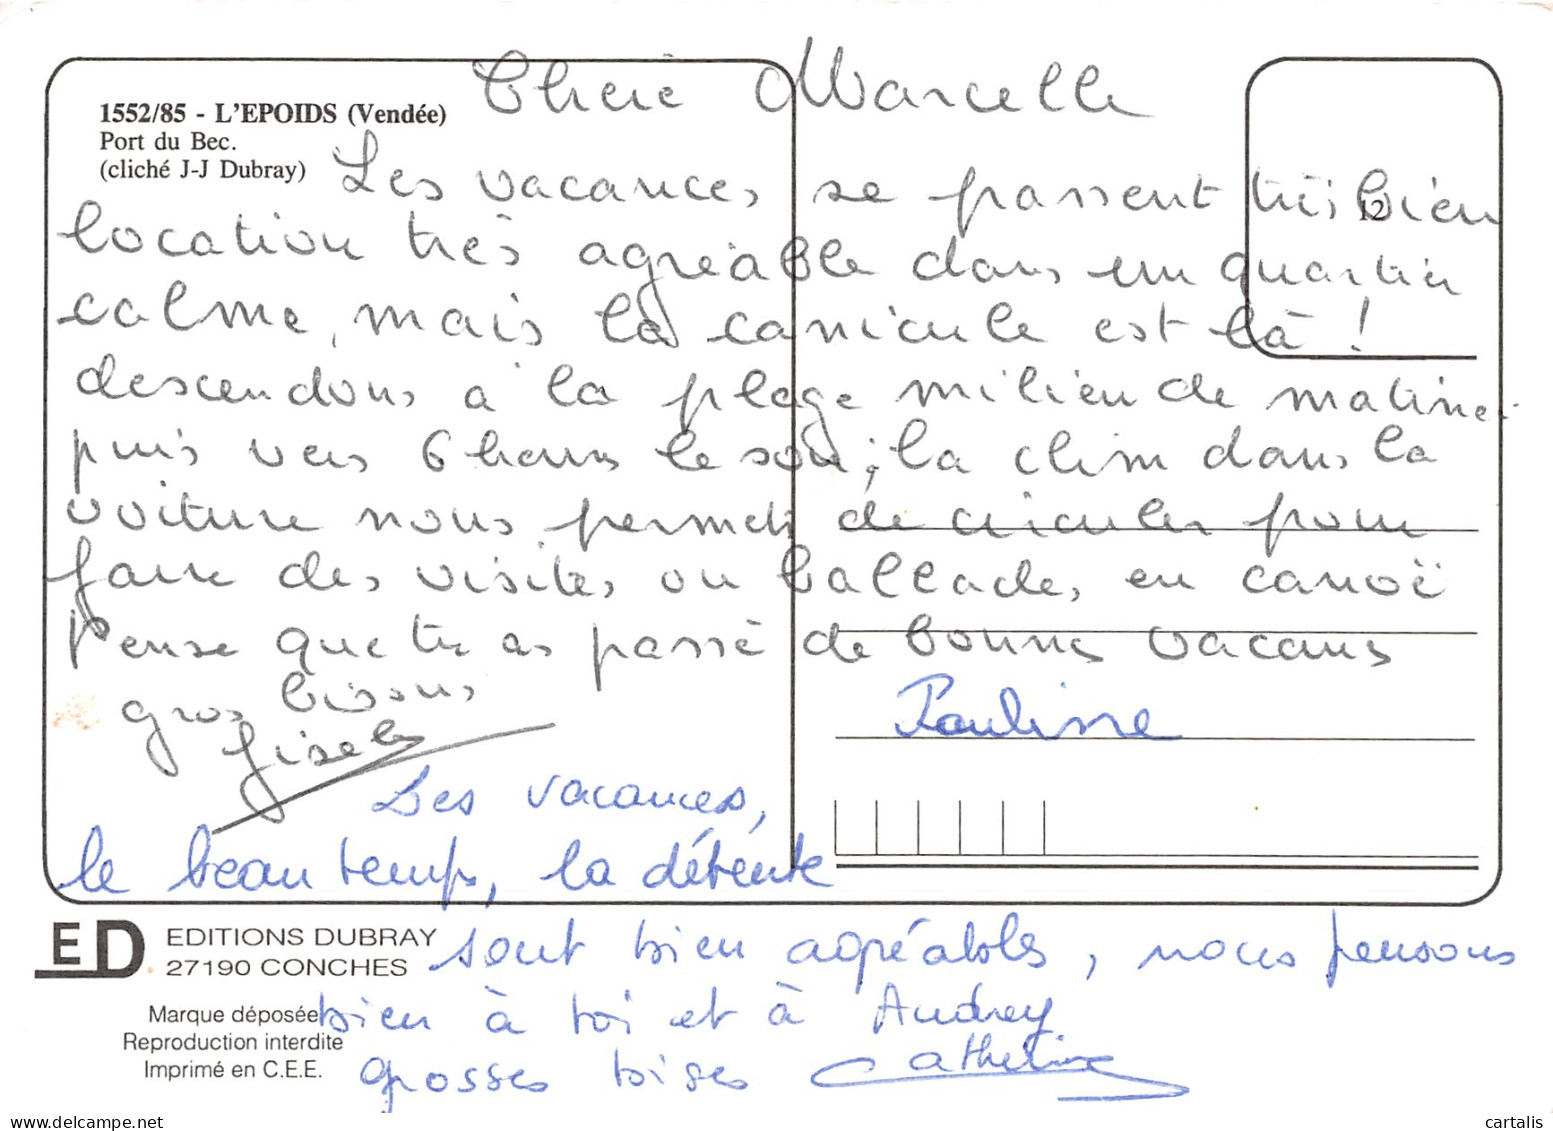 1552/85 - L'EPOIDS (Vendée)
Port du Bec.
(cliché J-J Dubray)
12
Chère Marcelle
Les vacances se passent très bien
location très agréable dans un quartier
calme, mais la canicule est là !
descendons à la plage milieu de matinée
puis vers 6 heures le soir, la clim dans la
voiture nous permet de circuler pour
faire des visites, ou ballades, en canoë
Pense que tu as passé de bonnes vacances
gros bisous
Gisele
Pauline
Les vacances,
le beau temps, la détente
sont bien agréables, nous pensons
bien à toi et à Audrey
grosses bises Catherine
ED
EDITIONS DUBRAY
27190 CONCHES
Marque déposée
Reproduction interdite
Imprimé en C.E.E.
delcampe.net
cartalis